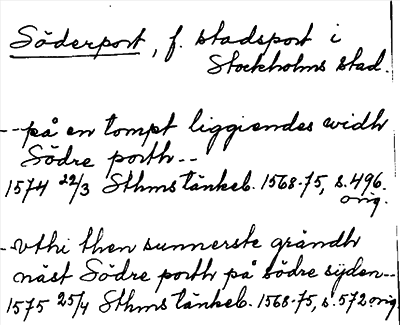 Söderport, f. stadsport i
Stockholms stad.
-- på en tompt liggiendes widh
Södre porth --
1574 22/3 Sthms tänkeb. 1568-75, s. 496.
orig.
- vthi then sunnerste grändh
näst Södre porth på södre syden --
1575 25/4 Sthms tänkeb. 1568-75, s. 572 orig.